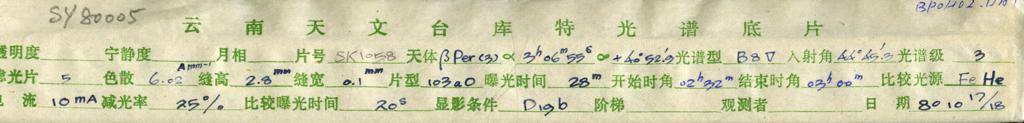 SY80005
云南天文台库特光谱底片
透明度 宁静度 月相 片号 SK1058 天体 β Per (3) α 3h 06m 55s α +40° 52'.9 光谱型 B8V 入射角 44° 45'.3 光谱级 3
滤光片 5 色散 6.02 Amm-1 缝高 2.8 mm 缝宽 0.1 mm 片型 103aO 曝光时间 28m 开始时角 02h 32m 结束时角 03h 00m 比较光源 FeHe
电流 10mA 减光率 25% 比较曝光时间 20s 显影条件 D19b 阶梯 观测者 日期 80 10 17/18